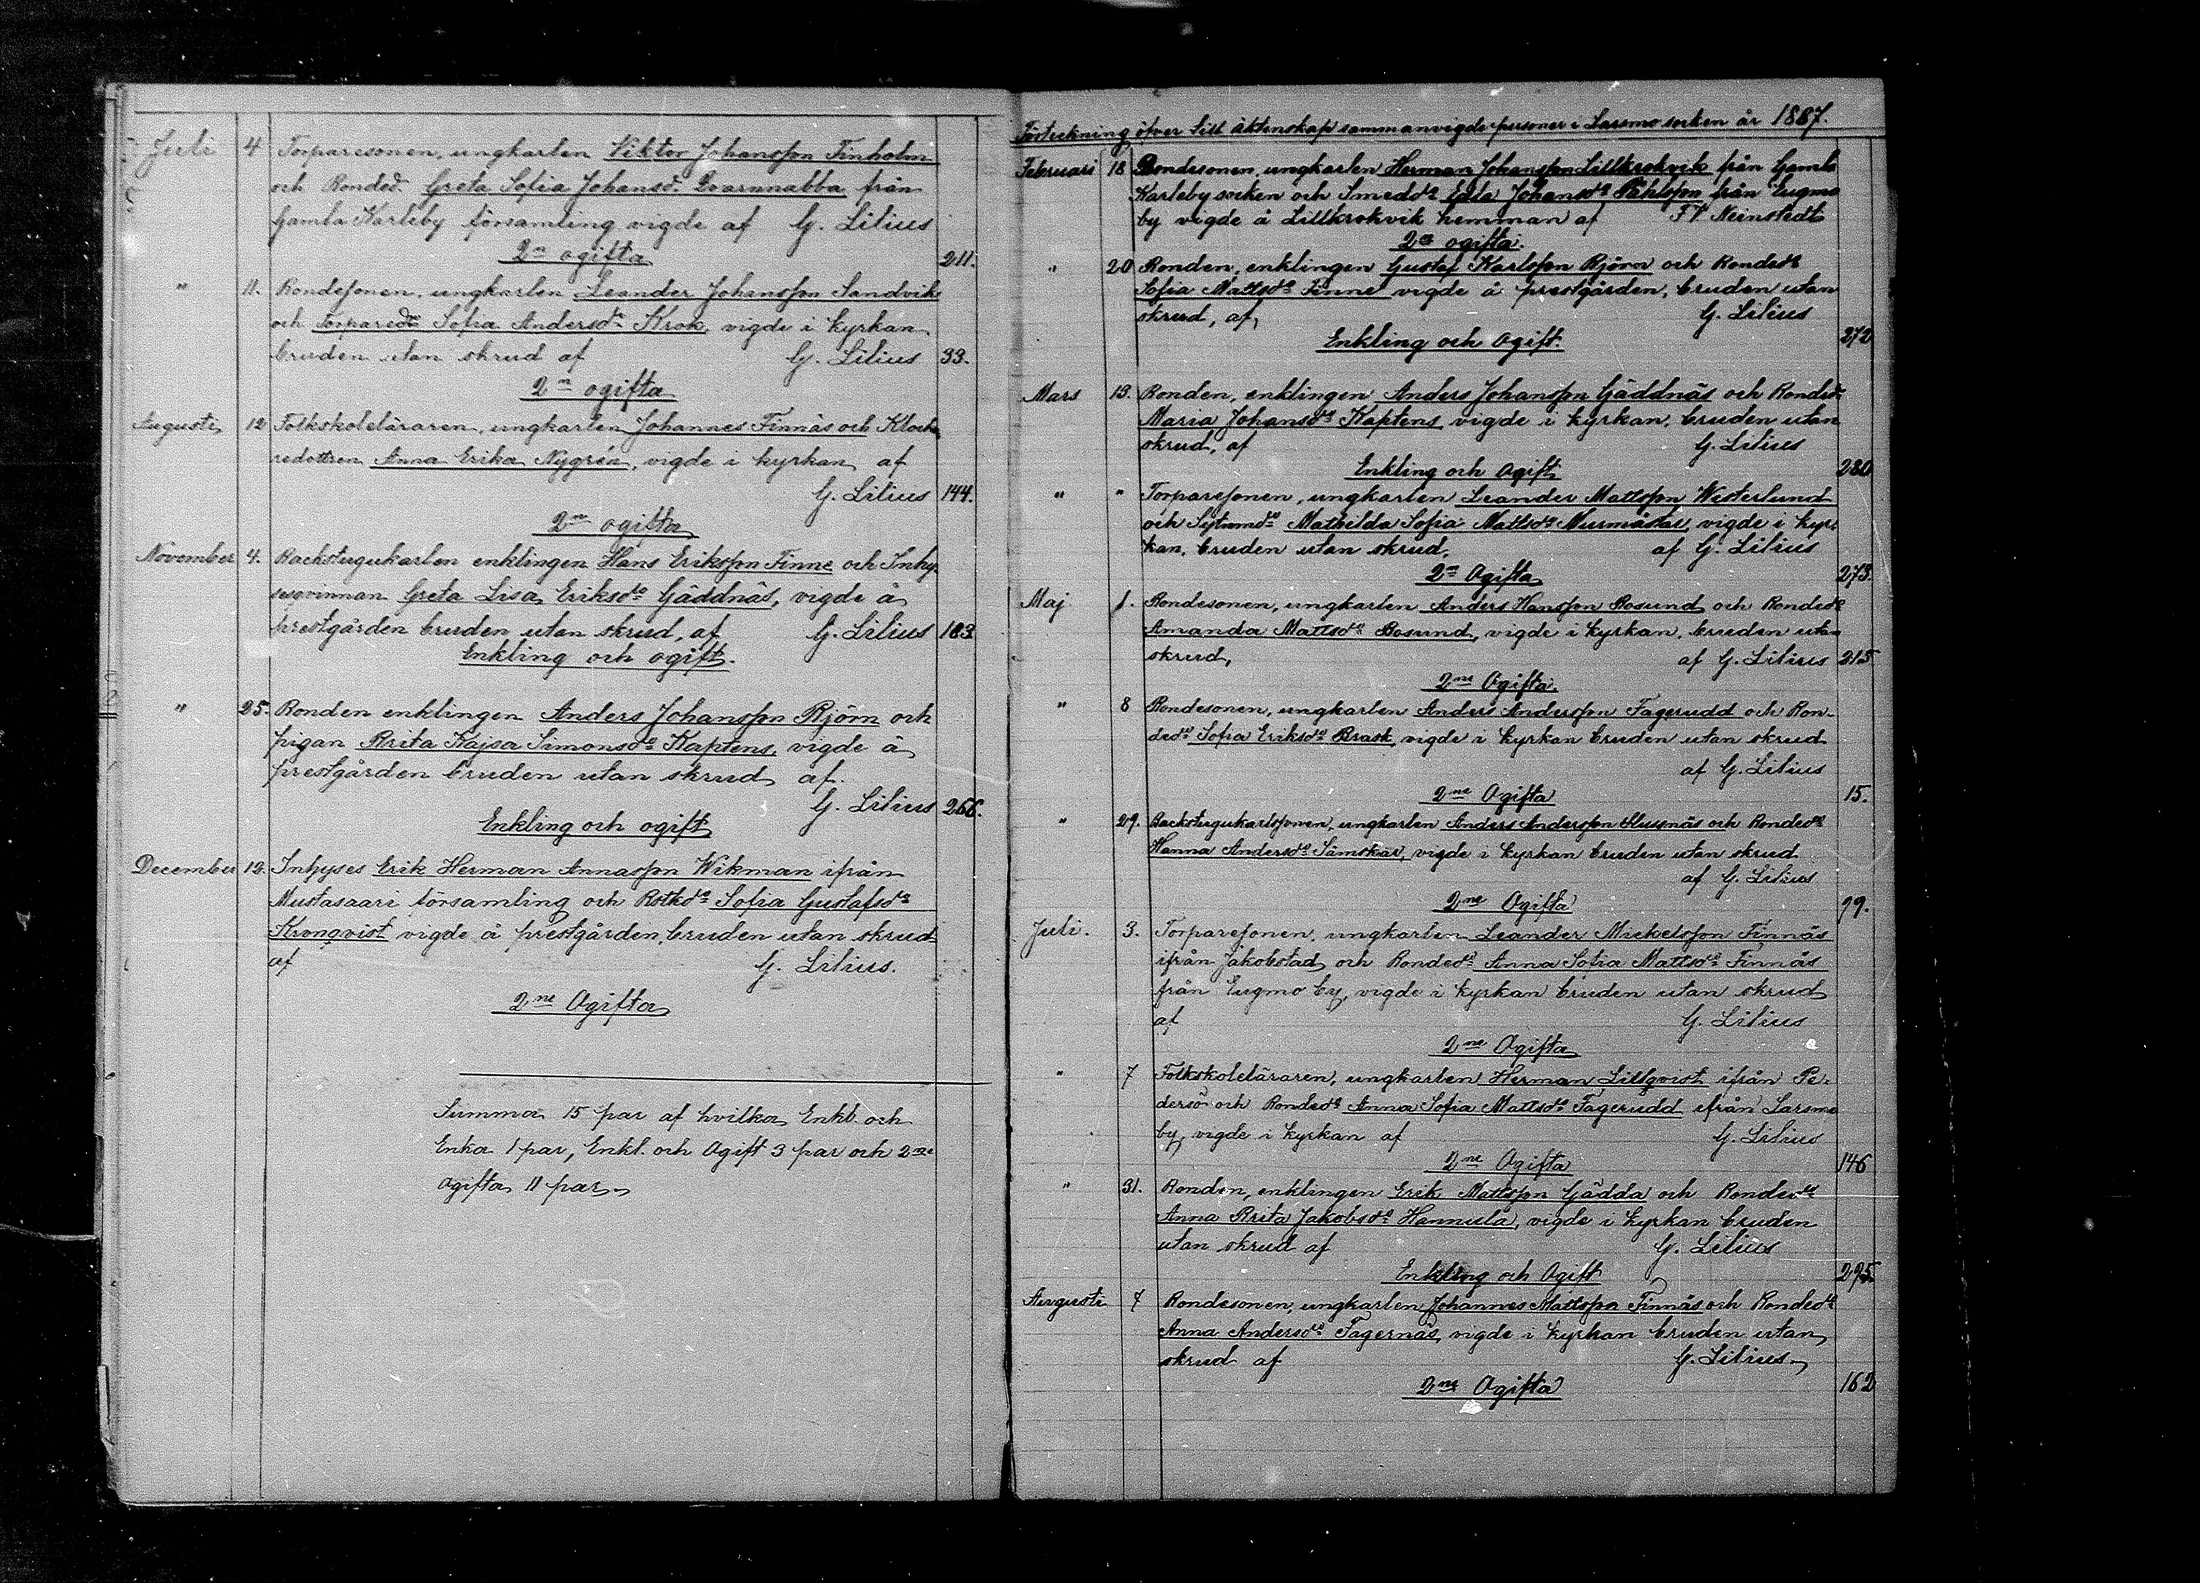 Juli 4 Torparesonen, ungkarlen Viktor Johansson Finholm
och Bonded. Greta Sofia Johansd. Qvarnnabba från
Gamla Karleby församling vigde af G. Lilius
2ne ogifta 211.
" 11. Bondesonen, ungkarlen Leander Johansson Sandvik
och Torpared:r Sofia Andersd:r Krok, vigde i kyrkan
bruden utan skrud af G. Lilius 33.
2ne ogifta
Augusti 12 Folkskoleläraren, ungkarlen Johannes Finnäs och Klocka
redottren Anna Erika Nygrén, vigde i kyrkan af
G. Lilius 144.
2ne ogifta
November 4. Backstugukarlen enklingen Hans Eriksson Finne och Inhy-
sesqvinnan Greta Lisa Eriksd:r Gäddnäs, vigde å
prestgården bruden utan skrud, af G. Lilius 183
Enkling och ogift.
" 25. Bonden enklingen Anders Johansson Björn och
pigan Brita Kajsa Simonsd:r Kaptens, vigde å
prestgården bruden utan skrud af.
G. Lilius 266.
Enkling och ogift
December 12. Inhyses Erik Herman Annasson Wikman ifrån
Mustasaari församling och Sofia Gustafsd:r
Kronqvist vigde å prestgården, bruden utan skrud
af G. Lilius.
2ne Ogifta
Summa 15 par af hvilka Enkl. och
Enka 1 par, Enkl. och Ogift 3 par och 2ne
ogifta 11 par.
Förteckning öfver till äktenskap sammanvigde personer i Larsmo socken år 1887.
Februari 18 Bondesonen, ungkarlen Herman Johansson Lillkrokvik från Gamla
Karleby socken och Smedd:r Johansd:r Påhlsson från Eugmo
by vigde å Lillkrokvik hemman af Neinstedt
2ne ogifta.
" 20 Bonden, enklingen Gustaf Karlsson Björn och Bonded:r
Sofia Mattsd:r Finne vigde å prestgården, bruden utan
skrud, af, G. Lilius
Enkling och Ogift. 272
Mars 13. Bonden, enklingen Anders Johansson Gäddnäs och Bonded:r
Maria Johansd:r Kaptens vigde i kyrkan, bruden utan
skrud, af G. Lilius
Enkling och Ogift 280
" " Torparesonen, ungkarlen Leander Mattsson Westerlund
och Sytnmd:r Mathilda Sofia Mattsd:r Murmästar, vigde i kyr-
kan, bruden utan skrud, af G. Lilius
2ne Ogifta 273.
Maj 1. Bondesonen, ungkarlen Anders Hansson Bosund och Bonded:r
Amanda Mattsd:r Bosund, vigde i kyrkan, bruden utan
skrud, af G. Lilius 215
2ne Ogifta.
" 8 Bondesonen, ungkarlen Anders Andersson Fagerudd och Bon-
ded:r Sofia Eriksd:r Brask, vigde i kyrkan bruden utan skrud
af G. Lilius
2ne Ogifta 15.
" 29. Backstugukarlsonen, ungkarlen Anders Andersson och Bonded:r
Hanna Andersd:r Sämskar, vigde i kyrkan bruden utan skrud
af G. Lilius
2ne Ogifta 99.
Juli. 3. Torparesonen, ungkarlen Leander Mickelsson Finnäs
ifrån Jakobstad och Bonded:r Anna Sofia Mattsd:r Finnäs
från Eugmo by, vigde i kyrkan bruden utan skrud
af G. Lilius
2ne Ogifta
" 7 Folkskoleläraren, ungkarlen Herman Lillqvist ifrån Pe-
dersö och Bonded:r Anna Sofia Mattsd:r Fagerudd ifrån Larsmo
by, vigde i kyrkan af G. Lilius
2ne Ogifta 146
" 31. Bonden, enklingen Erik Mattsson Gädda och Bonded:r
Anna Brita Jakobsd:r Hannula, vigde i kyrkan bruden
utan skrud af G. Lilius
Enkling och Ogift 295
Augusti 7 Bondesonen, ungkarlen Johannes Mattsson Finnäs och Bonded:r
Anna Andersd:r Fagernäs, vigde i kyrkan bruden utan
skrud af G. Lilius.
2ne Ogifta 162